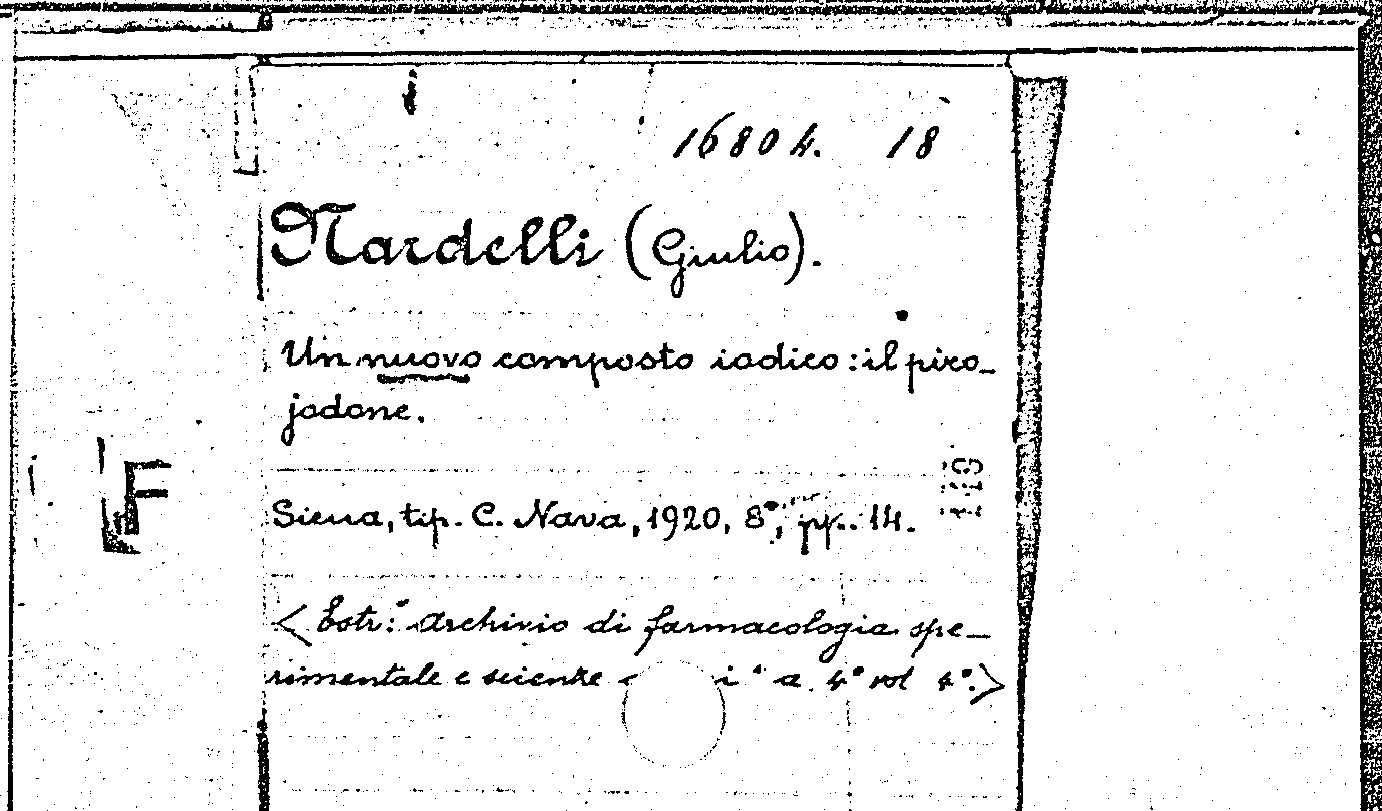 16804. 18
Nardelli (Giulio).
Un nuovo composto iodico: il piro-
jodone.
Siena, tip. C. Nava, 1920, 8°, pp. 14.
< Estr: Archivio di farmacologia spe-
rimentale e scienze a. 4° vol 4°.>
F